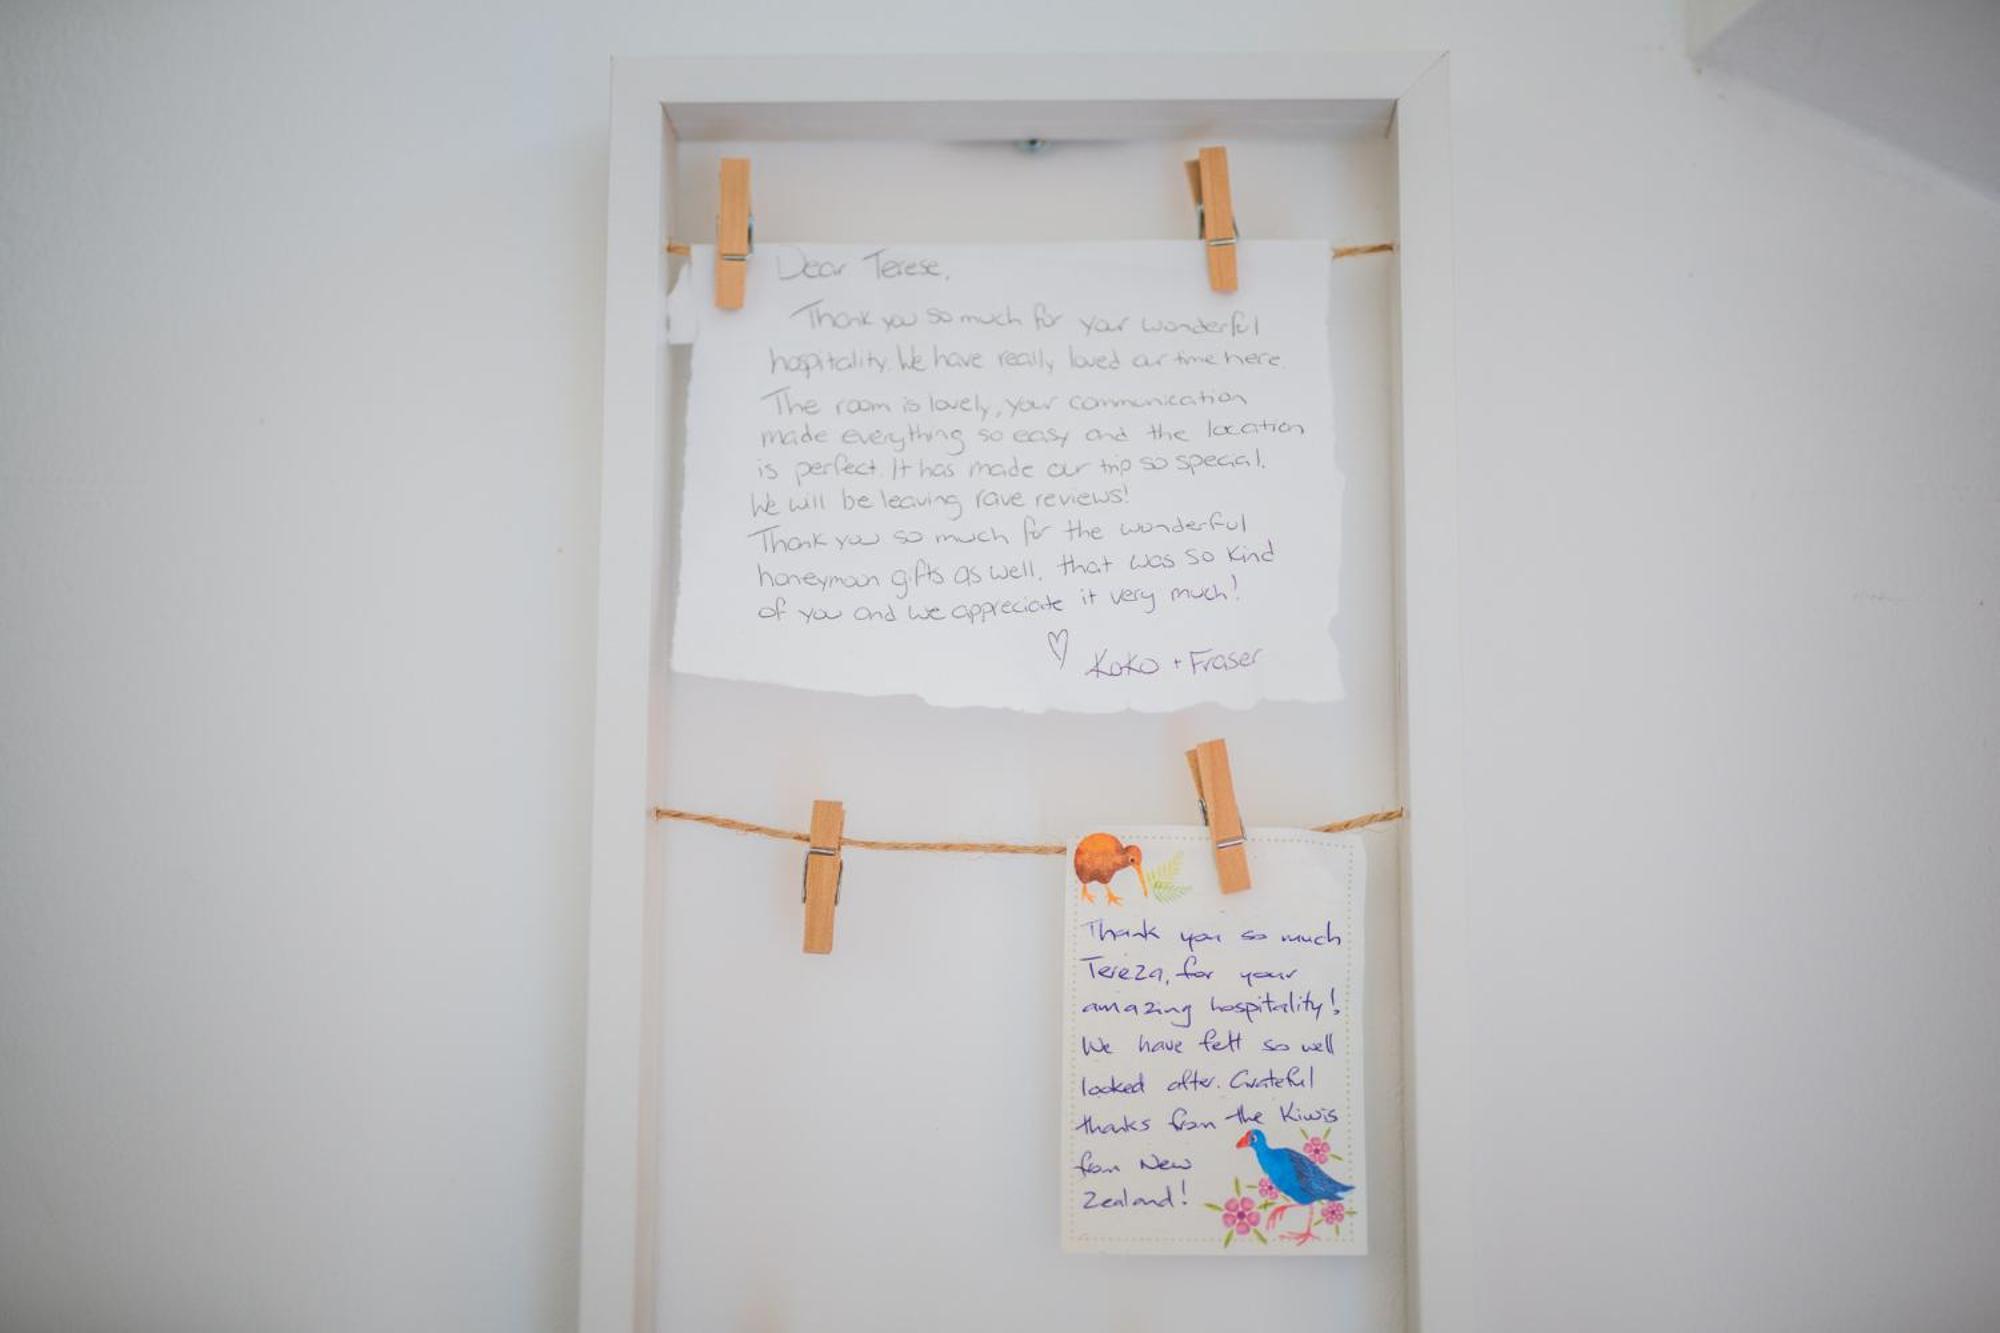 Dear Terese,
Thank you so much for your wonderful
hospitality. We have really loved our time here.
The room is lovely, your communication
made everything so easy and the location
is perfect. It has made our trip so special.
We will be leaving rave reviews!
Thank you so much for the wonderful
honeymoon gifts as well, that was so kind
of you and we appreciate it very much!
♡ Koko + Fraser
Thank you so much
Tereza, for your
amazing hospitality!
We have felt so well
looked after. Grateful
thanks from the Kiwis
from New
Zealand!